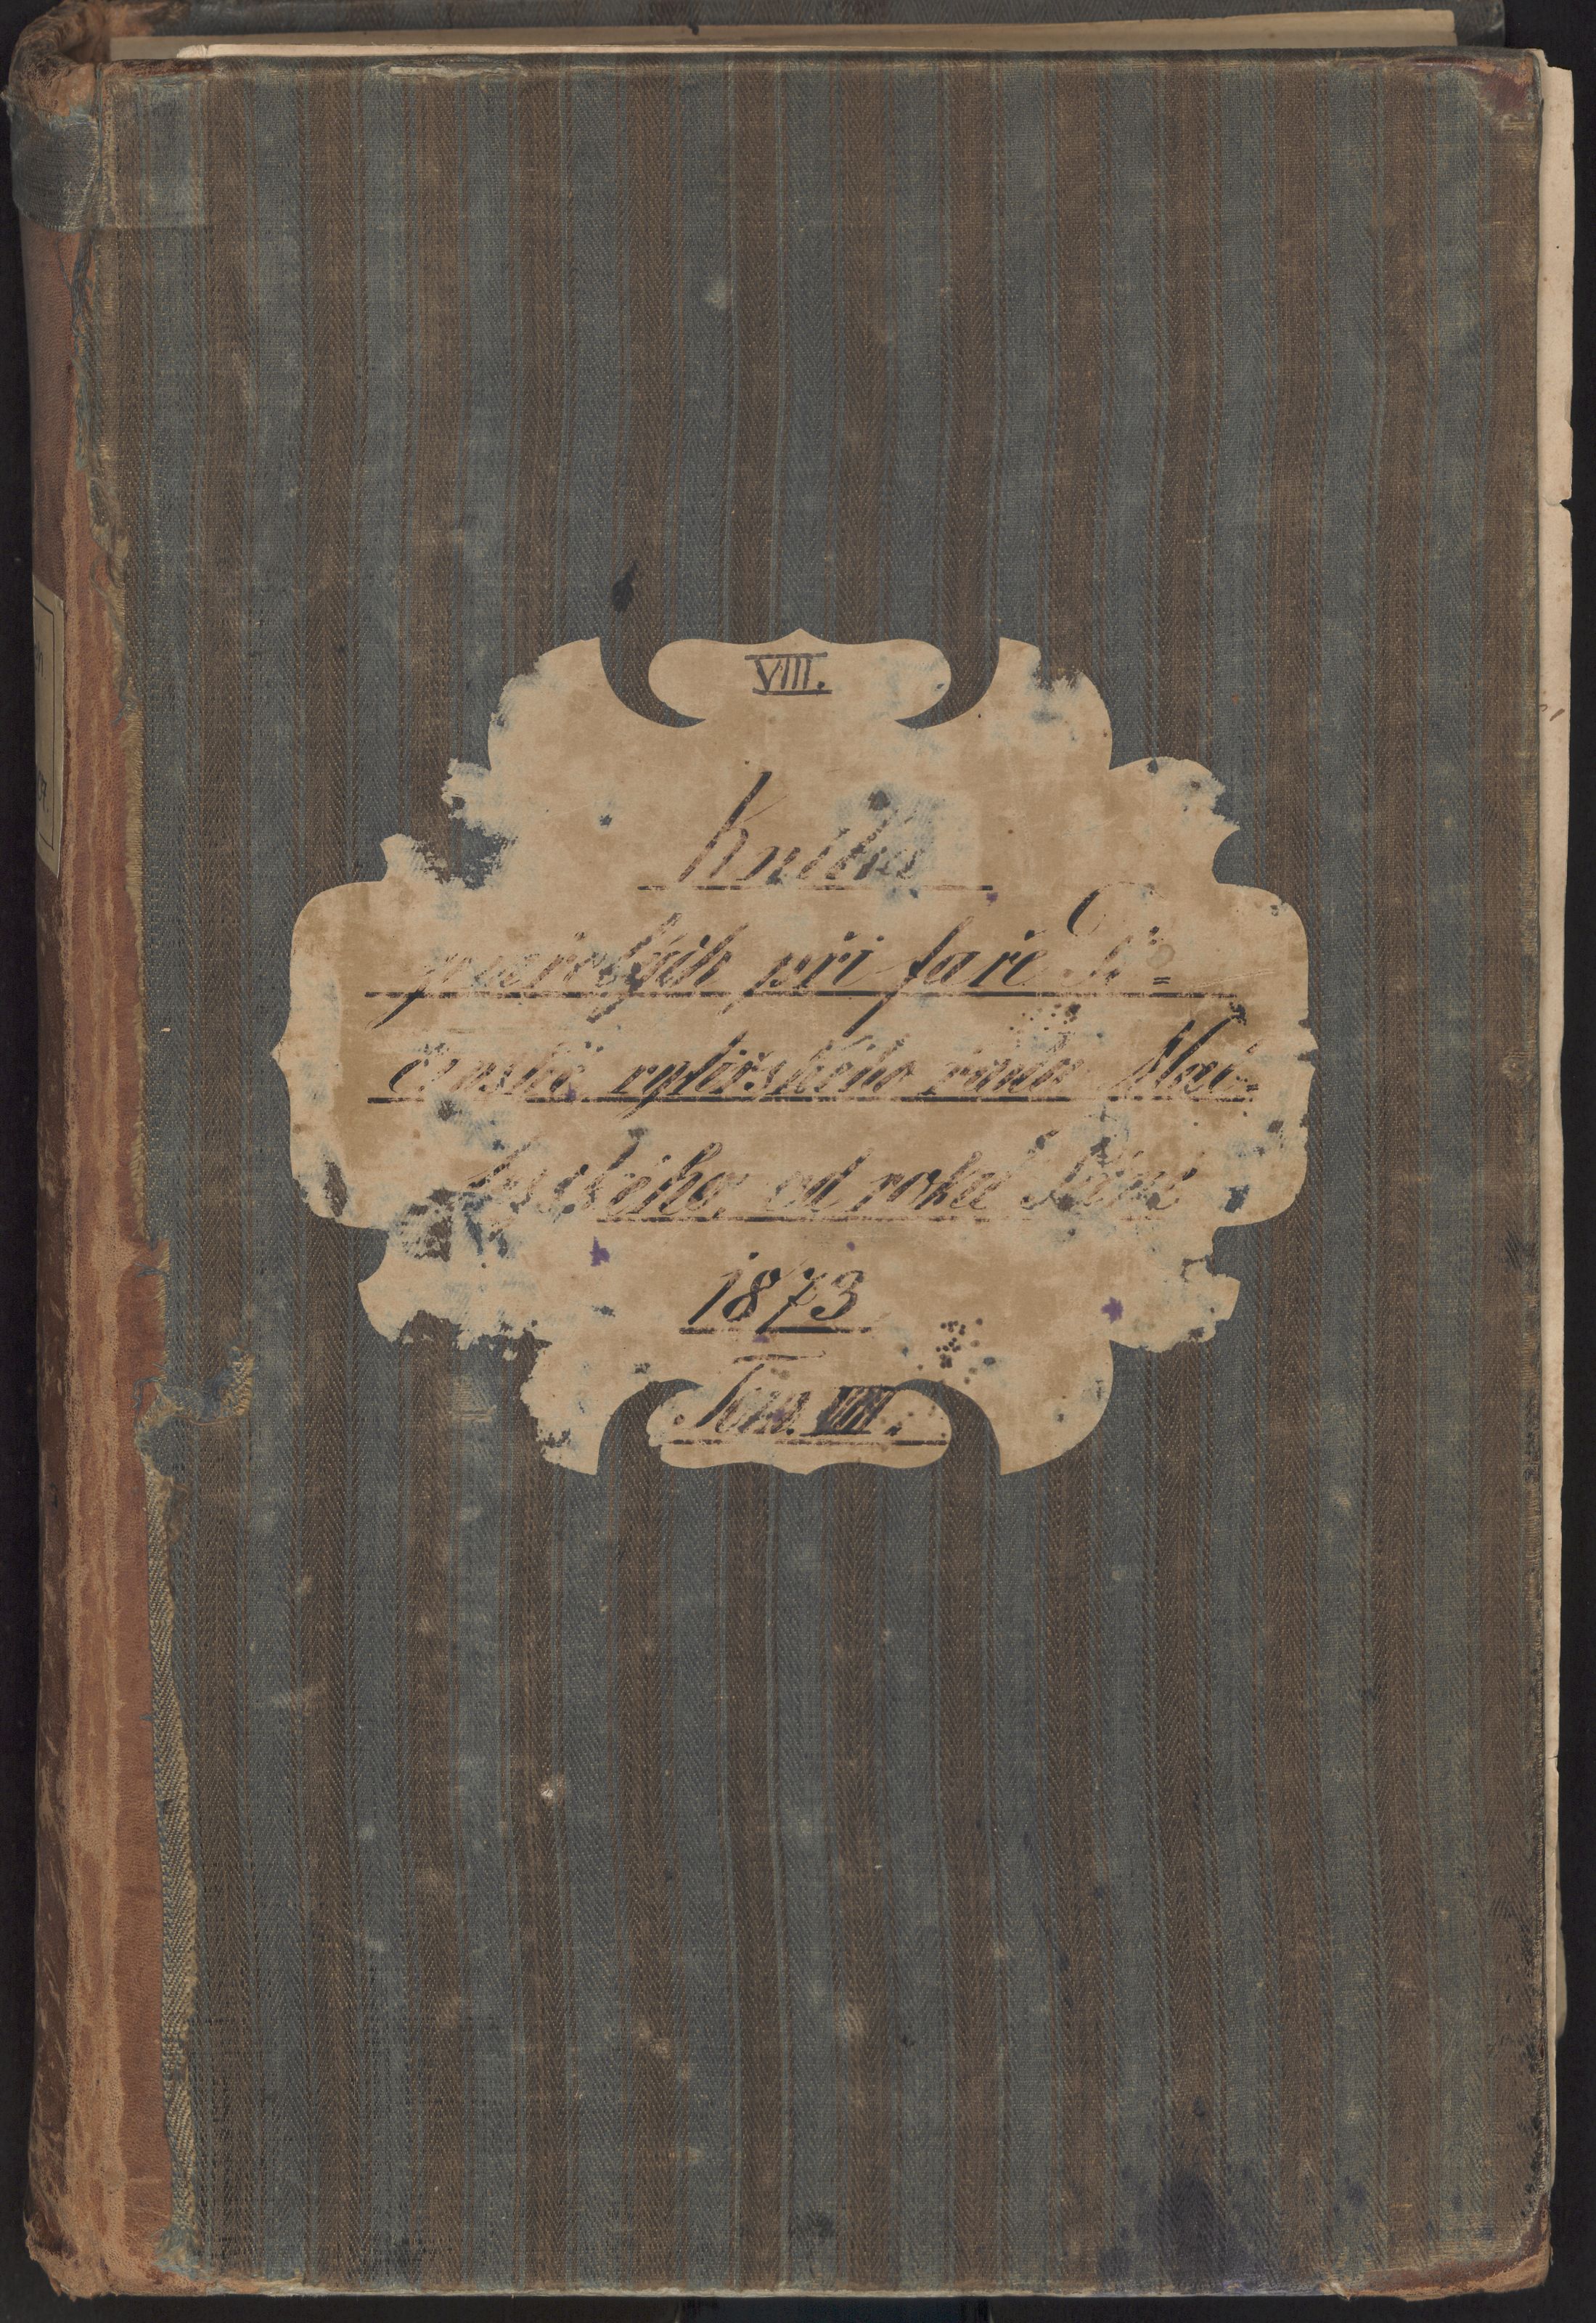 VIII.
Kniha
zemřelých při faře
rytířského řádu Mal-
tézského, od roku Páně
1873
Tom. VIII.